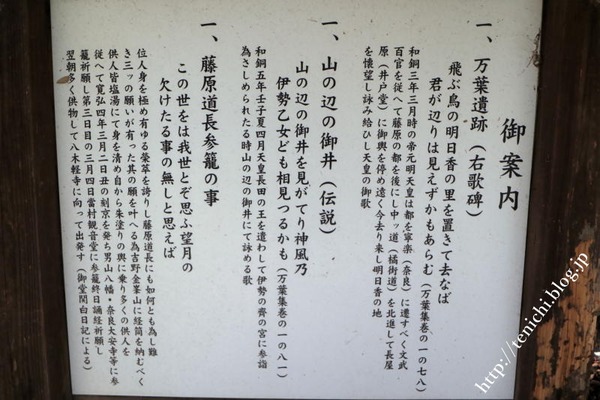 御案内
一、万葉遺跡（右歌碑）
飛ぶ鳥の明日香の里を置きて去なば
君が辺りは見えずかもあらむ（万葉集巻の一の七八）
和銅三年三月時の帝元明天皇は都を寧楽（奈良）に遷すべく文武
百官を従へて藤原の都を後にし中ッ道（橘街道）を北進して長屋
原（井戸堂）に御輿を停め遠く今去り来し明日香の地
を懐望し詠み給ひし天皇の御歌
一、山の辺の御井（伝説）
山の辺の御井を見がてり神風乃
伊勢乙女ども相見つるかも（万葉集巻の一の八一）
和銅五年壬子夏四月天皇長田の王を遣わして伊勢の齊の宮に参詣
為さしめられたる時山の辺の御井にて詠める歌
一、藤原道長参籠の事
この世をは我世とぞ思ふ望月の
欠けたる事の無しと思えば
位人身を極め有ゆる榮萃を誇りし藤原道長にも如何とも為し難
き三ッの願いが有った其の願を叶へる為吉野金峯山に経筒を納むべく
供人皆塩湯にて身を清め自から朱塗りの輿に乗り多くの供人を
従へて寛弘四年三月二日丑の刻京を発ち男山八幡・奈良大安寺等に参
籠祈願し第三日目の三月四日當村観音堂に参籠終日誦経祈願し
翌朝多く供物して八木軽寺に向って出発す（御堂関白日記による）
http://tenichi.blog.jp